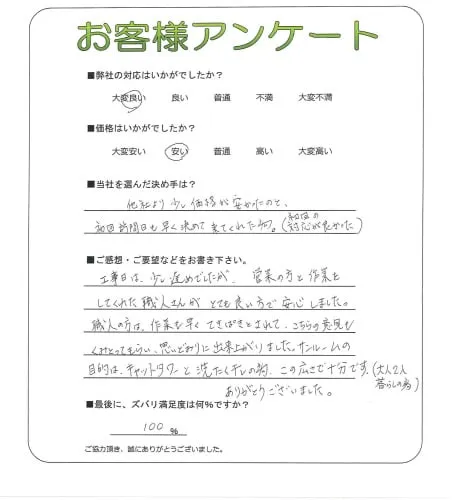 お客様アンケート
■弊社の対応はいかがでしたか？
大変良い 良い 普通 不満 大変不満
■価格はいかがでしたか？
大変安い 安い 普通 高い 大変高い
■当社を選んだ決め手は？
他社より少し価格が安かたのと、
初回訪問日も早く決めて来てくれた為。(初回の対応が良かった)
■ご感想・ご要望などをお書き下さい。
工事日は、少し遅めでしたが、営業の方と作業を
してくれた職人さんがとても良い方で安心しました。
職人の方は、作業も早くてきぱきとされて、こちらの意見も
くみとってもらい、思いどおりに出来上がりました。サンルームの
目的は、キャットタワーと洗たく干しの為、この広さで十分です。(大人2人暮らしの為)
ありがとうございました。
■最後に、ズバリ満足度は何%ですか？
100 %
ご協力頂き、誠にありがとうございました。